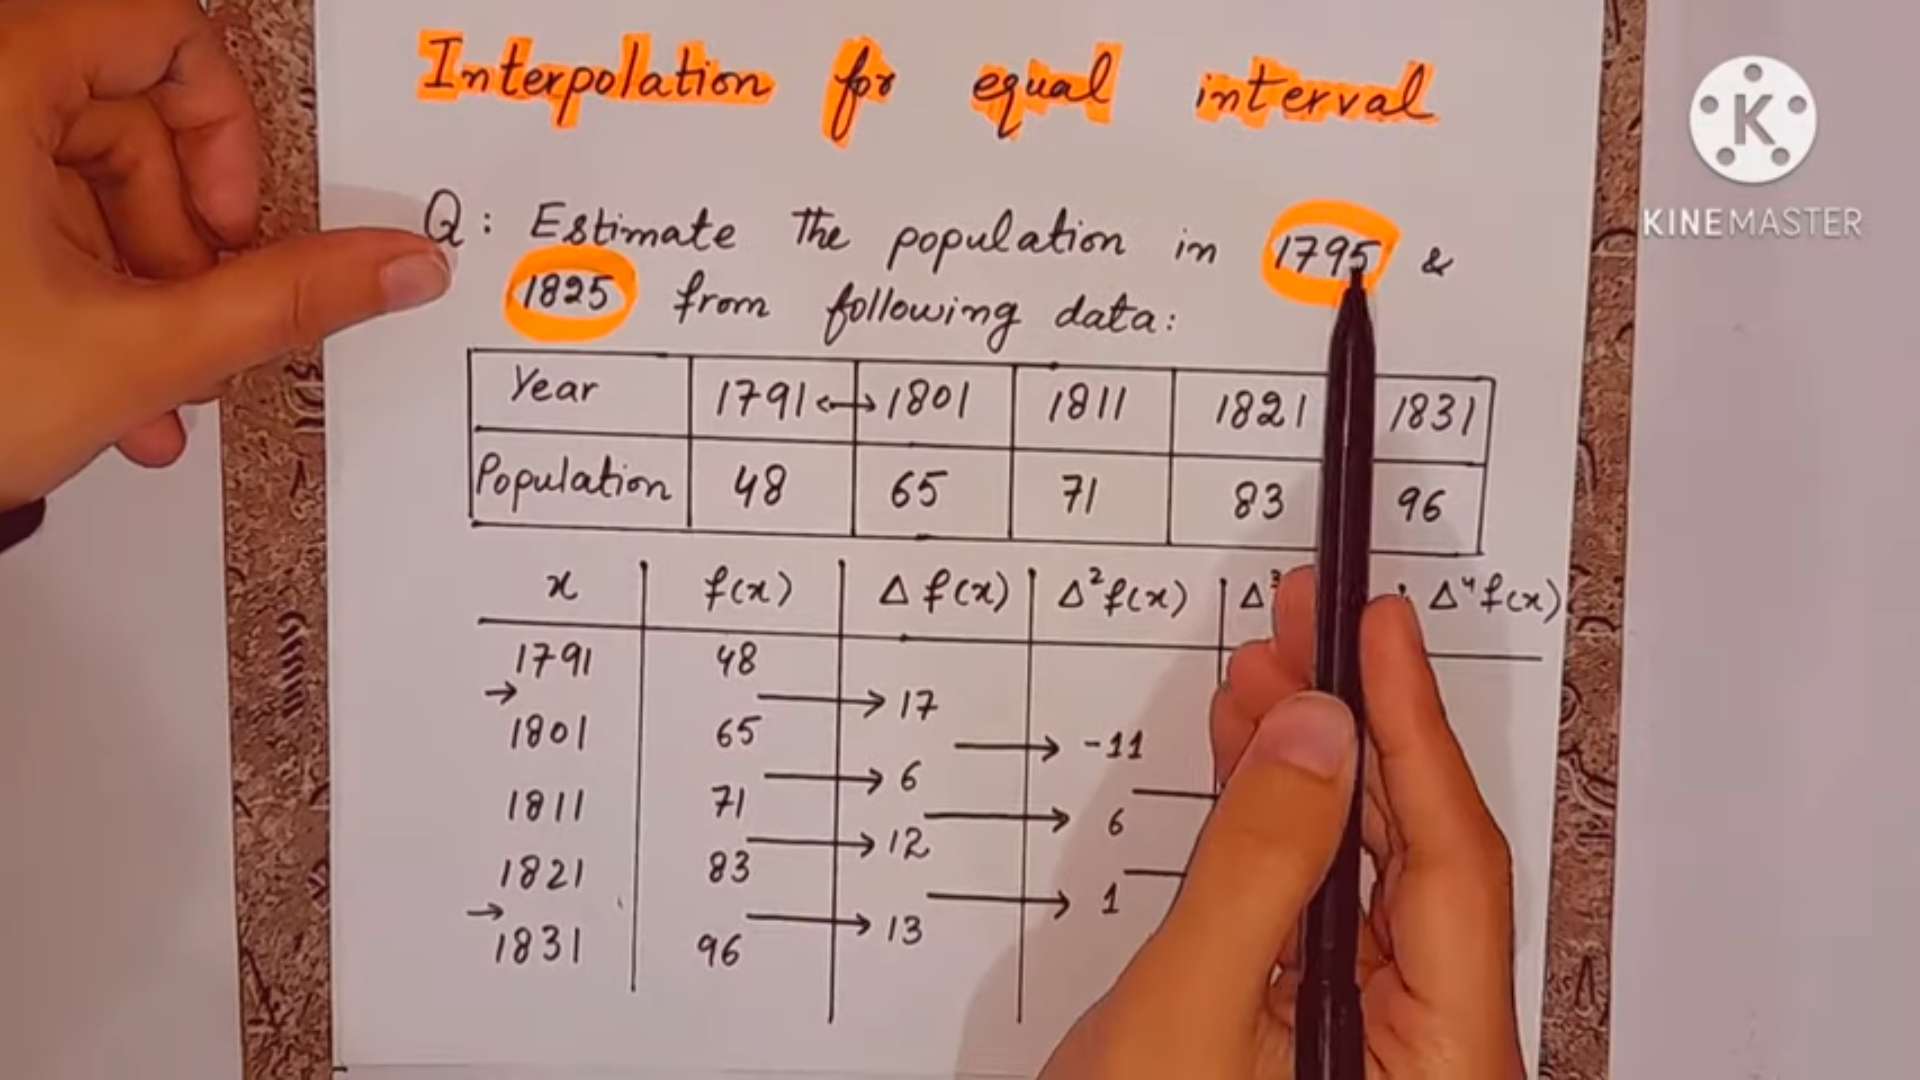 Interpolation for equal interval
K
KINEMASTER
Q: Estimate the population in 1795 &
1825 from following data:
Year 1791 ↔ 1801 1811 1821 1831
Population 48 65 71 83 96
x f(x) Δ f(x) Δ² f(x) Δ³ Δ⁴ f(x)
1791 48
→ → 17
1801 65 → -11
→ 6
1811 71 → 6
→ 12
1821 83 → 1
→ → 13
1831 96